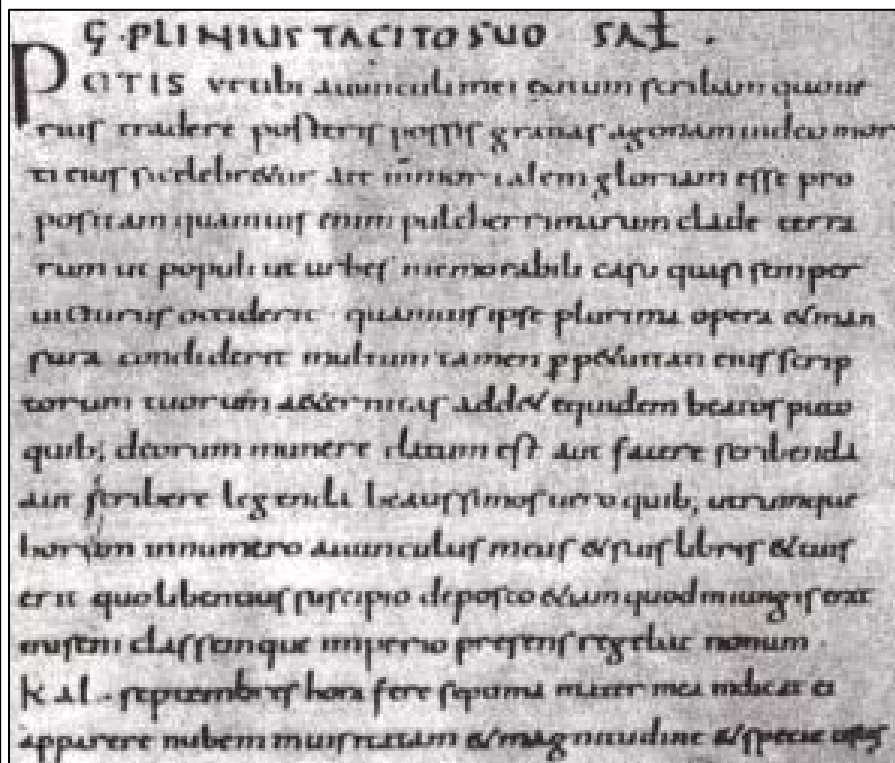 C · PLINIUS TACITO SUO SAL .
POTIS ut tibi auunculi mei exitum scribam quo ue
rius tradere posteris possis gratias ago nam uideo mor
ti eius si celebretur a te immortalem gloriam esse pro
positam quamuis enim pulcherrimarum clade terra
rum ut populi ut urbes memorabili casu quasi semper
uicturus occiderit quamuis ipse plurima opera & man
sura condiderit multum tamen perp&uitati eius scrip
torum tuorum a&ernitas add& equidem beatos puto
quib; deorum munere datum est aut facere scribenda
aut scribere legenda beatissimos uero quib; utrumque
horum in numero auunculus meus & suis libris & tuis
erit quo libentius suscipio deposco &iam quod iniungis erat
miseni classemque imperio presens regebat nonum ·
kal · septembres hora fere septima mater mea indicat ei
apparere nubem inusitatam & magnitudine & specie usus